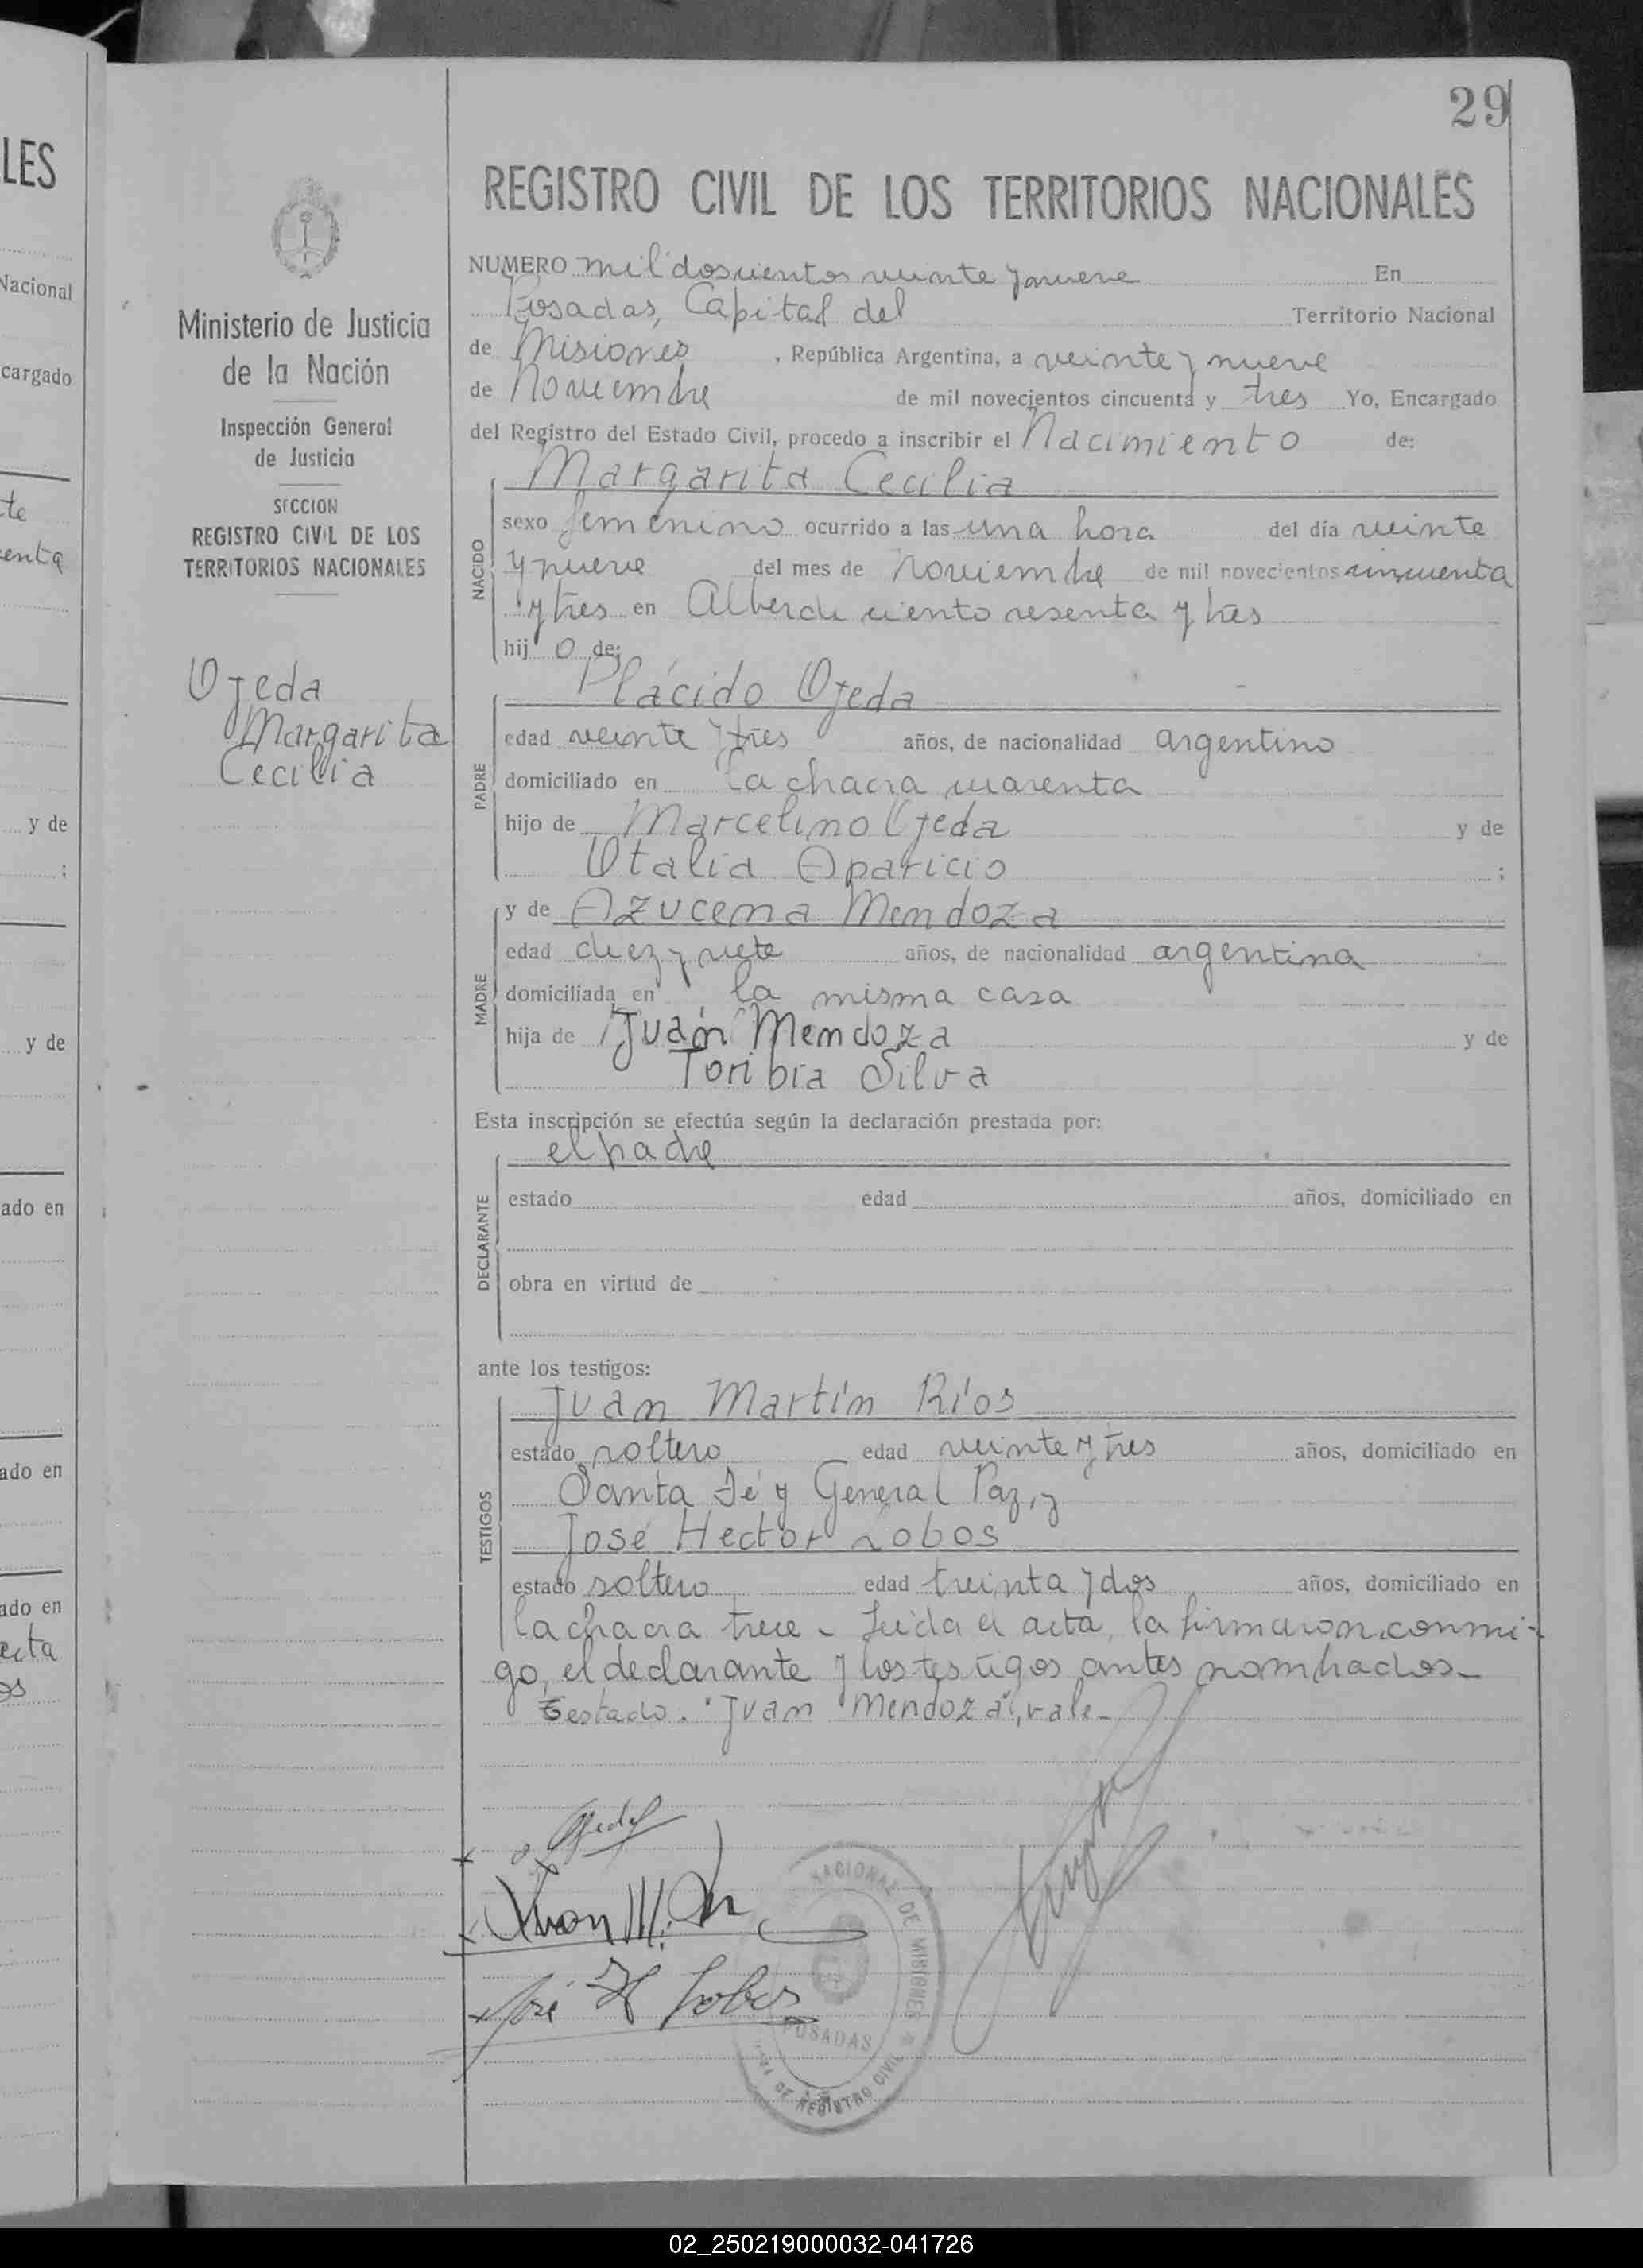 29
LES
REGISTRO CIVIL DE LOS TERRITORIOS NACIONALES
Nacional
cargado
te
enta
y de
;
y de
ado en
ado en
ado en
Ministerio de Justicia
de la Nación
Inspección General
de Justicia
SECCION
REGISTRO CIVIL DE LOS
TERRITORIOS NACIONALES
Ojeda
Margarita
Cecilia
NUMERO mil doscientos veinte y nueve En
Posadas, Capital del Territorio Nacional
de Misiones , República Argentina, a veinte y nueve
de Noviembre de mil novecientos cincuenta y tres Yo, Encargado
del Registro del Estado Civil, procedo a inscribir el Nacimiento de:
Margarita Cecilia
NACIDO
sexo femenino ocurrido a las una hora del día veinte
y nueve del mes de Noviembre de mil novecientos cincuenta
y tres en Alberdi ciento sesenta y tres
hij o de:
Plácido Ojeda
PADRE
edad veinte y tres años, de nacionalidad argentino
domiciliado en la chacra cuarenta
hijo de Marcelino Ojeda y de
Otalia Aparicio ;
y de Azucena Mendoza
MADRE
edad diez y siete años, de nacionalidad argentina
domiciliada en la misma casa
hija de Juan Mendoza y de
Toribia Silva
Esta inscripción se efectúa según la declaración prestada por:
el padre
DECLARANTE
estado edad años, domiciliado en
obra en virtud de
ante los testigos:
Juan Martín Ríos
TESTIGOS
estado soltero edad veinte y tres años, domiciliado en
Santa Fé y General Paz, y
José Hector Lobos
estado soltero edad treinta y dos años, domiciliado en
la chacra trece - Leída el acta, la firmaron conmi-
go, el declarante y los testigos antes nombrados-
Testado. "Juan Mendoza", vale-
Ojeda
Juan M.
José H Lobos
NACIONAL DE MISIONES
POSADAS
DE REGISTRO CIVIL
02_250219000032-041726